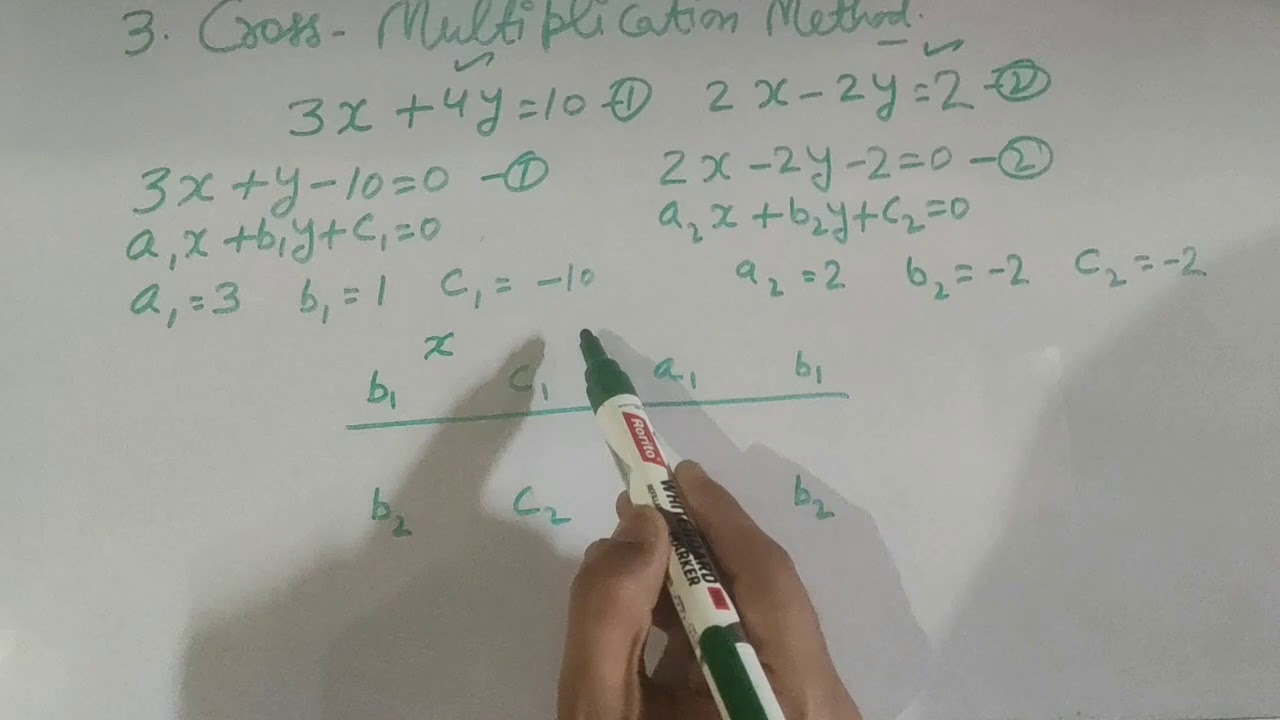 3. Cross- Multiplication Method.
3x + 4y = 10 - ① 2x - 2y = 2 - ②
3x + y - 10 = 0 - ① 2x - 2y - 2 = 0 - ②
a₁x + b₁y + c₁ = 0 a₂x + b₂y + c₂ = 0
a₁ = 3 b₁ = 1 c₁ = -10 a₂ = 2 b₂ = -2 c₂ = -2
x
b₁ c₁ a₁ b₁
b₂ c₂ b₂
Rorito
WHITEBOARD
MARKER